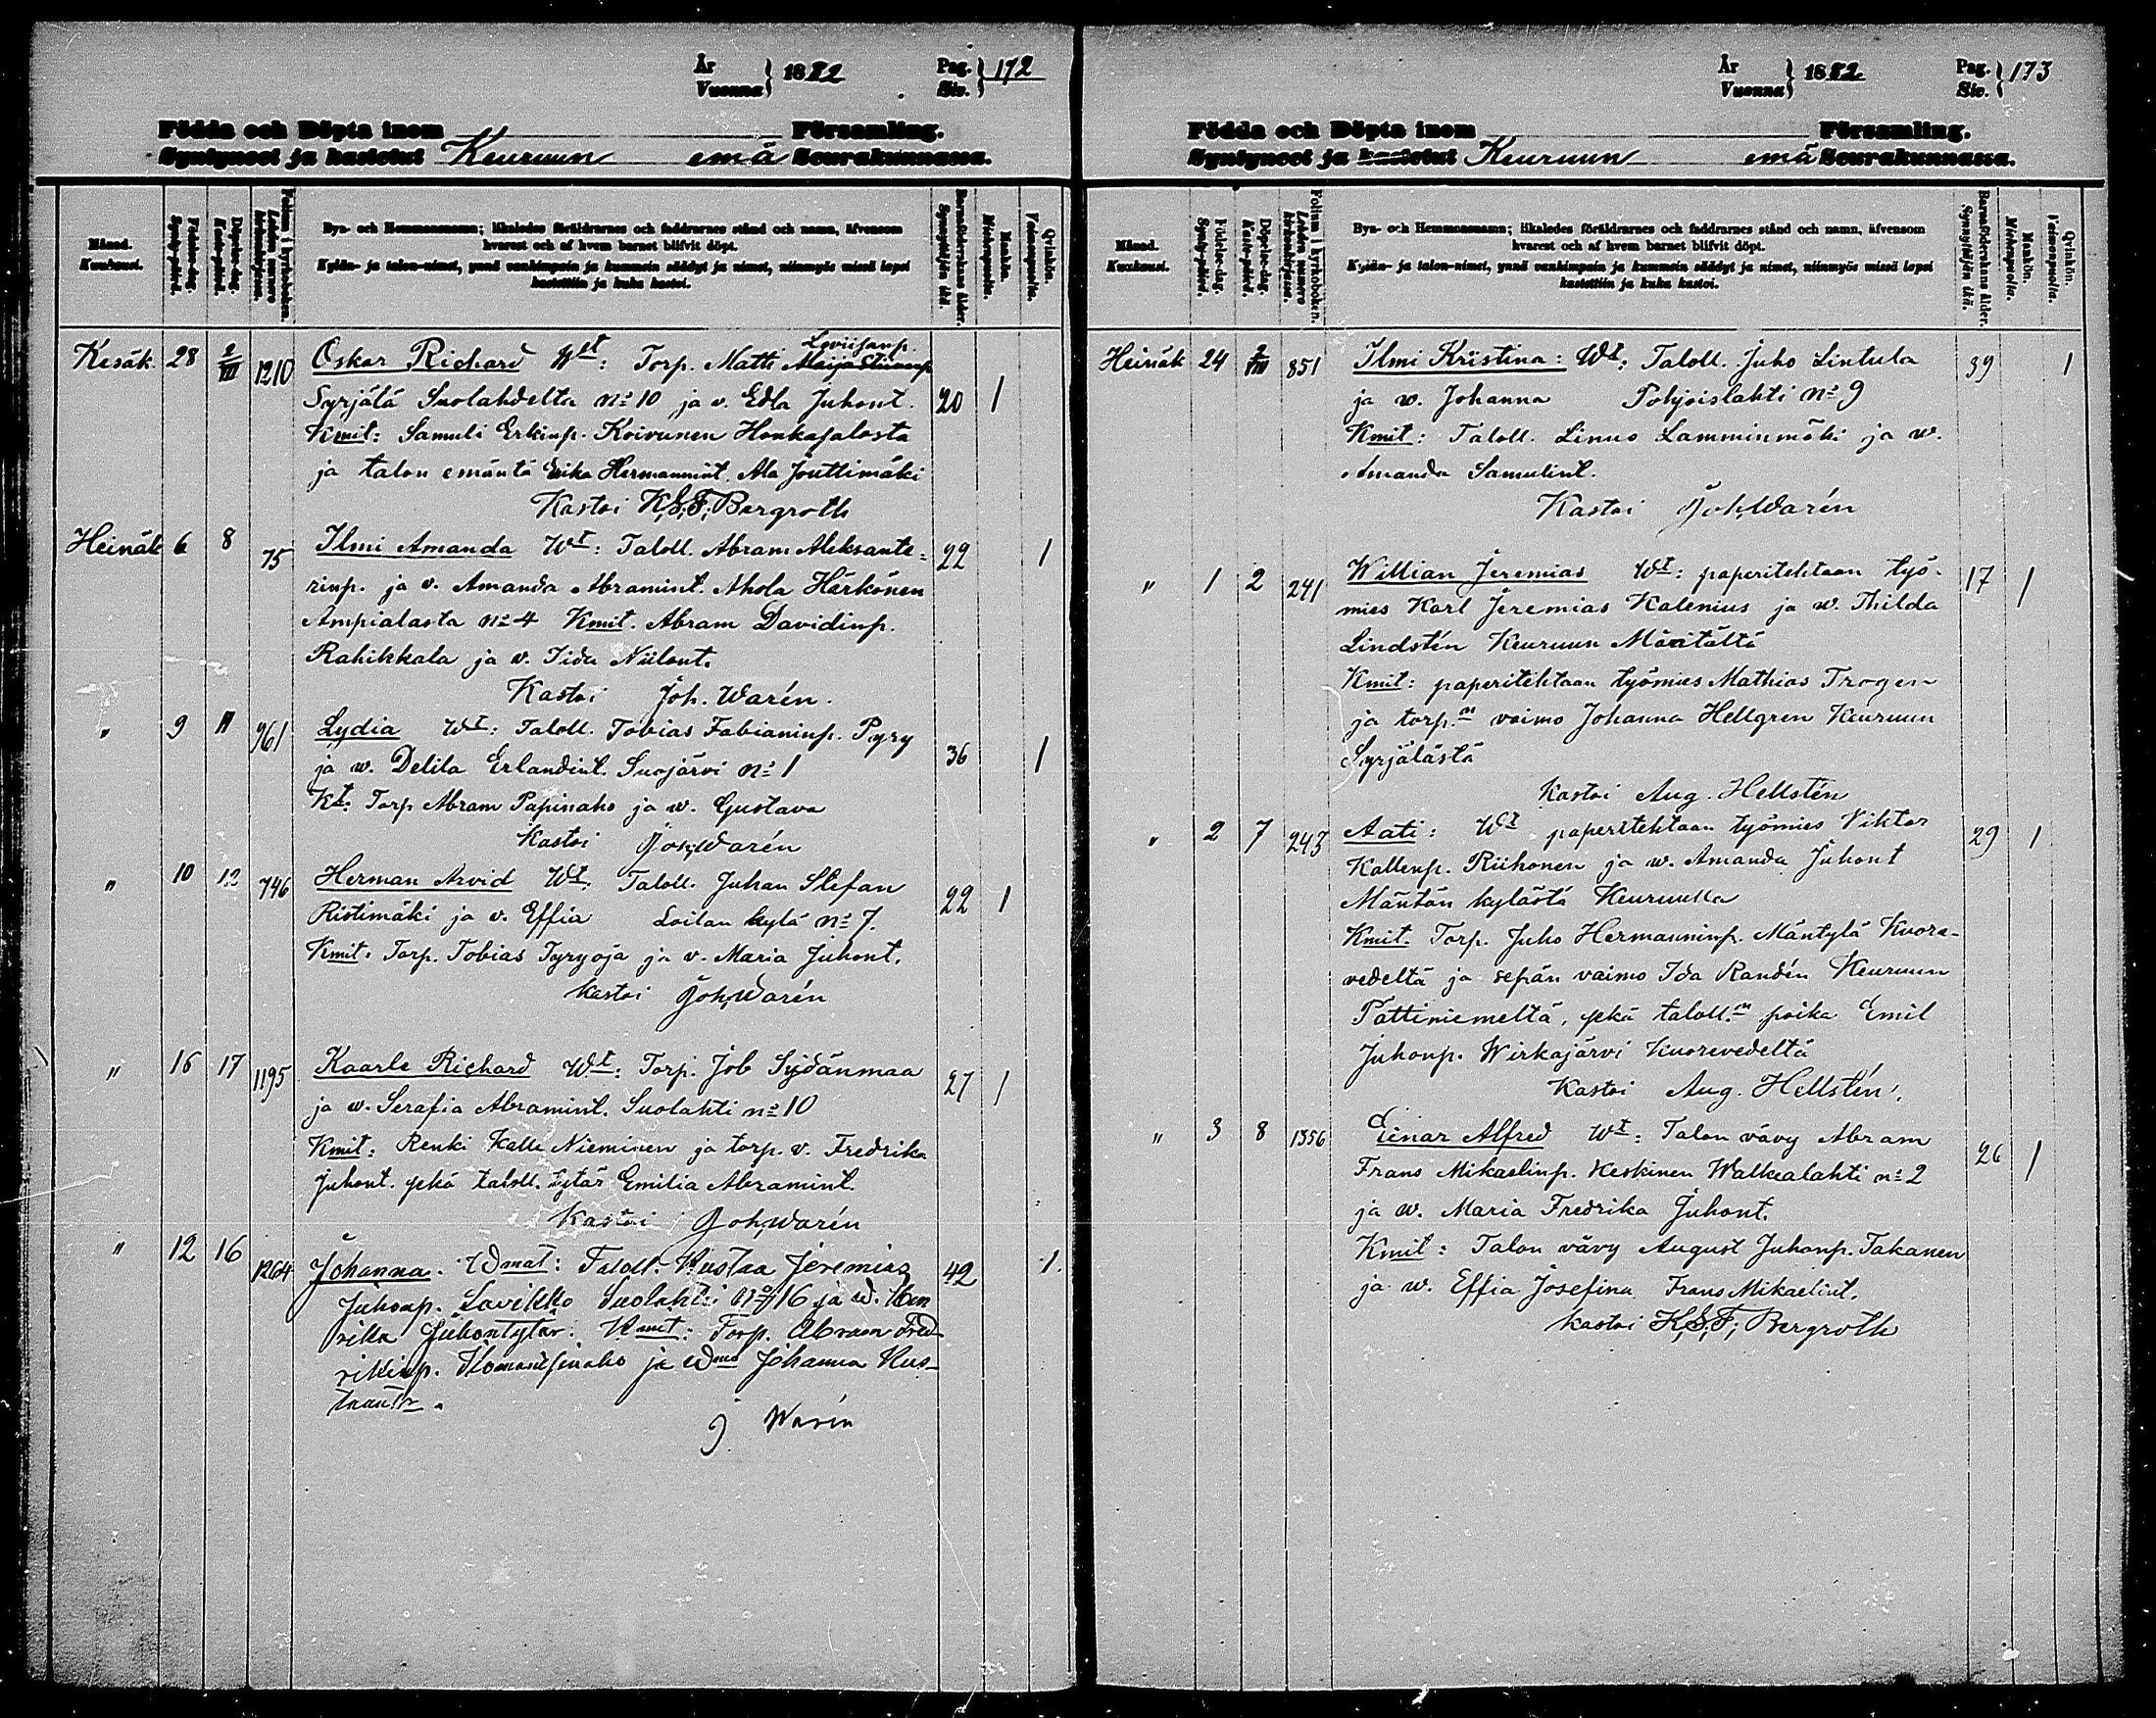 År
Vuonna } 1882 Pag.
Siv. } 172
Födda och Döpta inom Församling.
Syntyneet ja kastetut Keuruun emä Seurakunnassa.
Månad.
Kuukausi.
Födelse-dag.
Synty-päivä.
Döpelse-dag.
Kaste-päivä.
Folium i kyrkoboken.
Lehden numero kirkonkirjassa.
Bya- och Hemmansnamn; likaledes föräldrarnes och faddrarnes stånd och namn, äfvensom
hvarest och af hvem barnet blifvit döpt.
Kylän- ja talon-nimet, ynnä vanhimpain ja kummein säädyt ja nimet, niinmyös missä lapsi
kastettiin ja kuka kastoi.
Barnaföderskans ålder.
Synnyttäjän ikä.
Mankön.
Miehenpuolta.
Qvinkön.
Vaimonpuolta.
Loviisanp.
Kesäk. 28 2/III 1210 Oskar Richard Wt: Torp. Matti Maija Stiinanp
Syrjälä Suolahdelta No 10 ja v. Edla Juhont. 20 1
Kmit: Samuli Erkinp. Koivunen Honkajalosta
ja talon emäntä Erika Hermannint. Ala Jouttimäki
Kastoi K.S.F. Bergroth
Heinäk 6 8 75 Ilmi Amanda Wt: Taloll. Abram Aleksante- 22 1
rinp. ja v. Amanda Abramint. Ahola Härkönen
Ampialasta No 4 Kmit. Abram Davidinp.
Rahikkala ja v. Iida Niilont.
Kastoi Joh. Warén.
" 9 11 961 Lydia Wt: Taloll. Tobias Fabianinp. Pyry
ja w. Delila Erlandint. Suojärvi No 1 36 1
Kt: Torp Abram Papinaho ja w. Gustava
Kastoi Joh. Warén
" 10 12 746 Herman Arvid Wt. Taloll. Juhan Stefan
Ristimäki ja v. Effia Loilan kylä No 7. 22 1
Kmit. Torp. Tobias Tyryoja ja v. Maria Juhont.
Kastoi Joh. Warén
" 16 17 1195 Kaarle Richard Wt: Torp. Job Sydänmaa 27 1
ja w. Serafia Abramint. Suolahti No 10
Kmit: Renki Kalle Nieminen ja torp. v. Fredrika
Juhont. sekä taloll. tytär Emilia Abramint.
Kastoi Joh. Warén
" 12 16 1264 Johanna. Wmat: Taloll. Kustaa Jeremias 42 1.
Juhonp. Lavikko Suolahti No 16 ja W. Hen
rika Juhontytär. Kmit: Torp. Abram Fred-
rikinp. ja Wmo Johanna Kus-
taantr.
J Warén
År
Vuonna } 1882 Pag.
Siv. } 173
Födda och Döpta inom Församling.
Syntyneet ja kastetut Keuruun emä Seurakunnassa.
Månad.
Kuukausi.
Födelse-dag.
Synty-päivä.
Döpelse-dag.
Kaste-päivä.
Folium i kyrkoboken.
Lehden numero kirkonkirjassa.
Bya- och Hemmansnamn; likaledes föräldrarnes och faddrarnes stånd och namn, äfvensom
hvarest och af hvem barnet blifvit döpt.
Kylän- ja talon-nimet, ynnä vanhimpain ja kummein säädyt ja nimet, niinmyös missä lapsi
kastettiin ja kuka kastoi.
Barnaföderskans ålder.
Synnyttäjän ikä.
Mankön.
Miehenpuolta.
Qvinkön.
Vaimonpuolta.
Heinäk 24 2/VIII 851 Ilmi Kristina: Wt: Taloll. Juho Lintula 39 1
ja w. Johanna Pohjoislahti No 9
Kmit: Taloll. Linus Lamminmäki ja w.
Amanda Samulint.
Kastoi Joh. Warén
" 1 2 241 Willian Jeremias Wt: paperitehtaan työ- 17 1
mies Karl Jeremias Kalenius ja w. Thilda
Lindstén Keuruun Mäntältä
Kmit: paperitehtaan työmies Mathias Trogen
ja torp.n vaimo Johanna Hellgren Keuruun
Syrjälästä
Kastoi Aug. Hellstén
" 2 7 243 Aati: Wt paperitehtaan työmies Viktor 29 1
Kallenp. Riihonen ja w. Amanda Juhont
Mäntän kylästä Keuruulla
Kmit. Torp. Juho Hermanninp. Mäntylä Kuore-
vedeltä ja sepän vaimo Ida Randén Keuruun
Pottiniemeltä, sekä taloll.n poika Emil
Juhonp. Wirkajärvi Kuorevedeltä
Kastoi Aug. Hellstén.
" 3 8 1356 Einar Alfred Wt: Talon vävy Abram 26 1
Frans Mikaelinp. Keskinen Walkealahti No 2
ja w. Maria Fredrika Juhont.
Kmit: Talon vävy August Juhonp. Takanen
ja w. Effia Josefina Frans Mikaelint.
Kastoi K.S.F. Bergroth